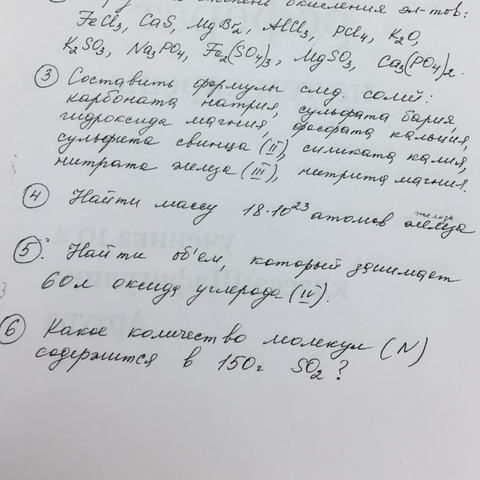 окисления эл-тов:
FeCl3, CaS, MgBr2, AlCl3, PCl4, K2O,
K2SO3, Na3PO4, Fe2(SO4)3, MgSO3, Ca3(PO4)2.
③ Составить формулы след. солей:
карбоната натрия, сульфата бария,
гидроксида магния, фосфата кальция,
сульфита свинца (II), силиката калия,
нитрата железа (III), нитрита магния.
железа
④ Найти массу 18·10^23 атомов железа
⑤. Найти об'ем который занимает
60л оксида углерода (IV).
⑥ Какое количество молекул (N)
содержится в 150г SO2?